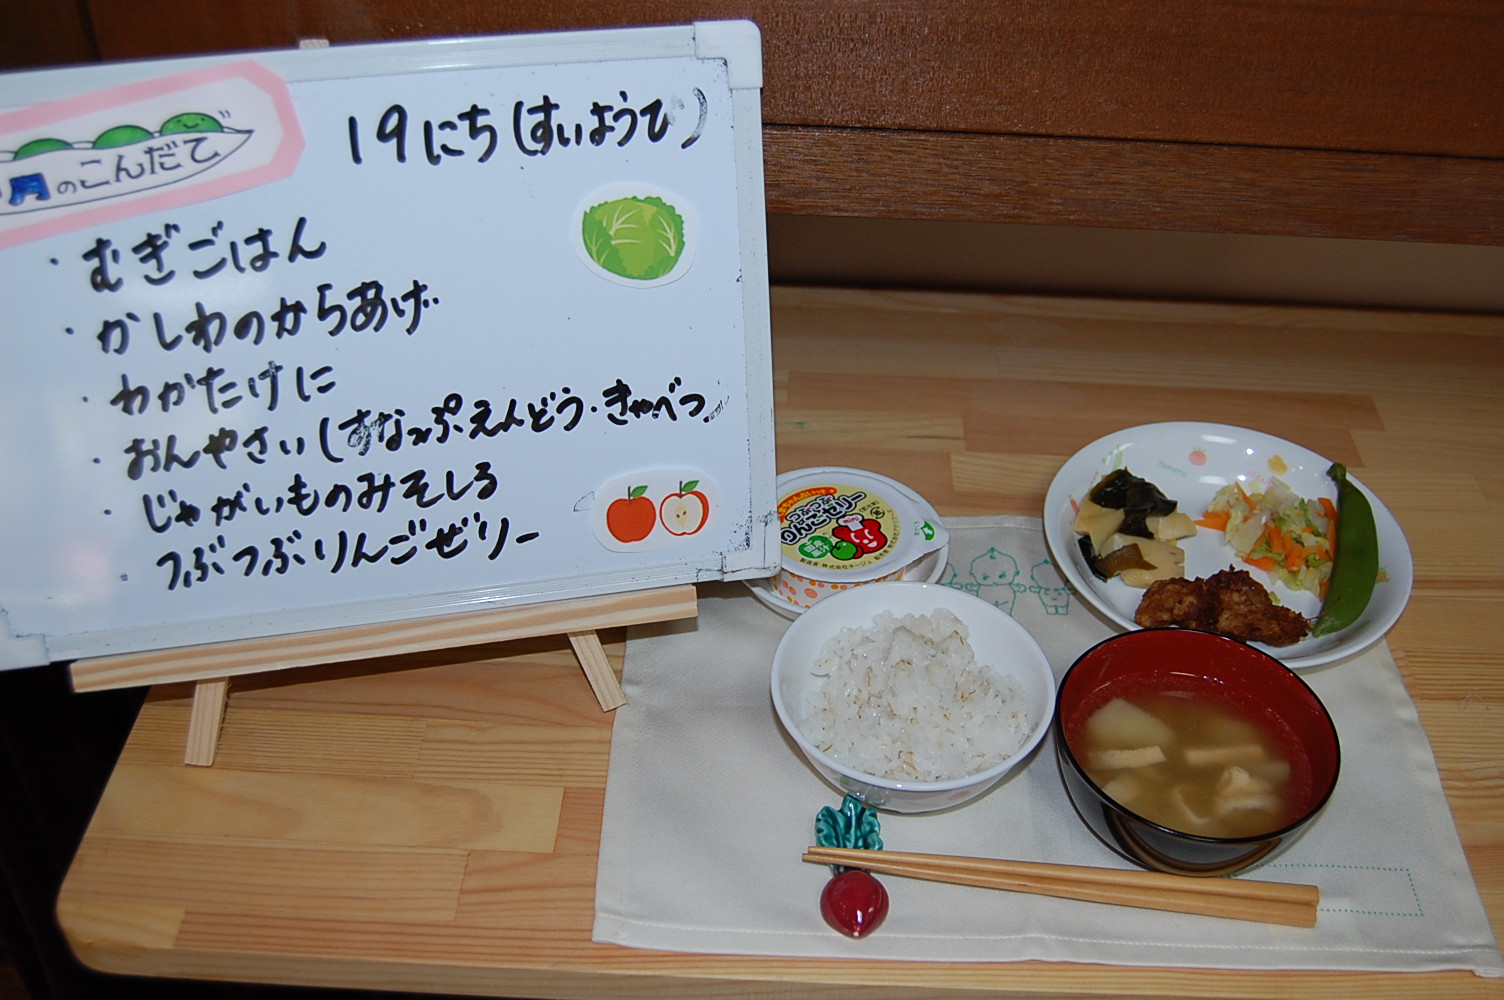 月のこんだて
19にち(すいようび)
・むぎごはん
・かしわのからあげ
・わかたけに
・おんやさい(すなっぷえんどう・きゃべつ
・じゃがいものみそしる
・つぶつぶりんごぜりー
つぶつぶ
りんごゼリー
国産
果汁
tomato